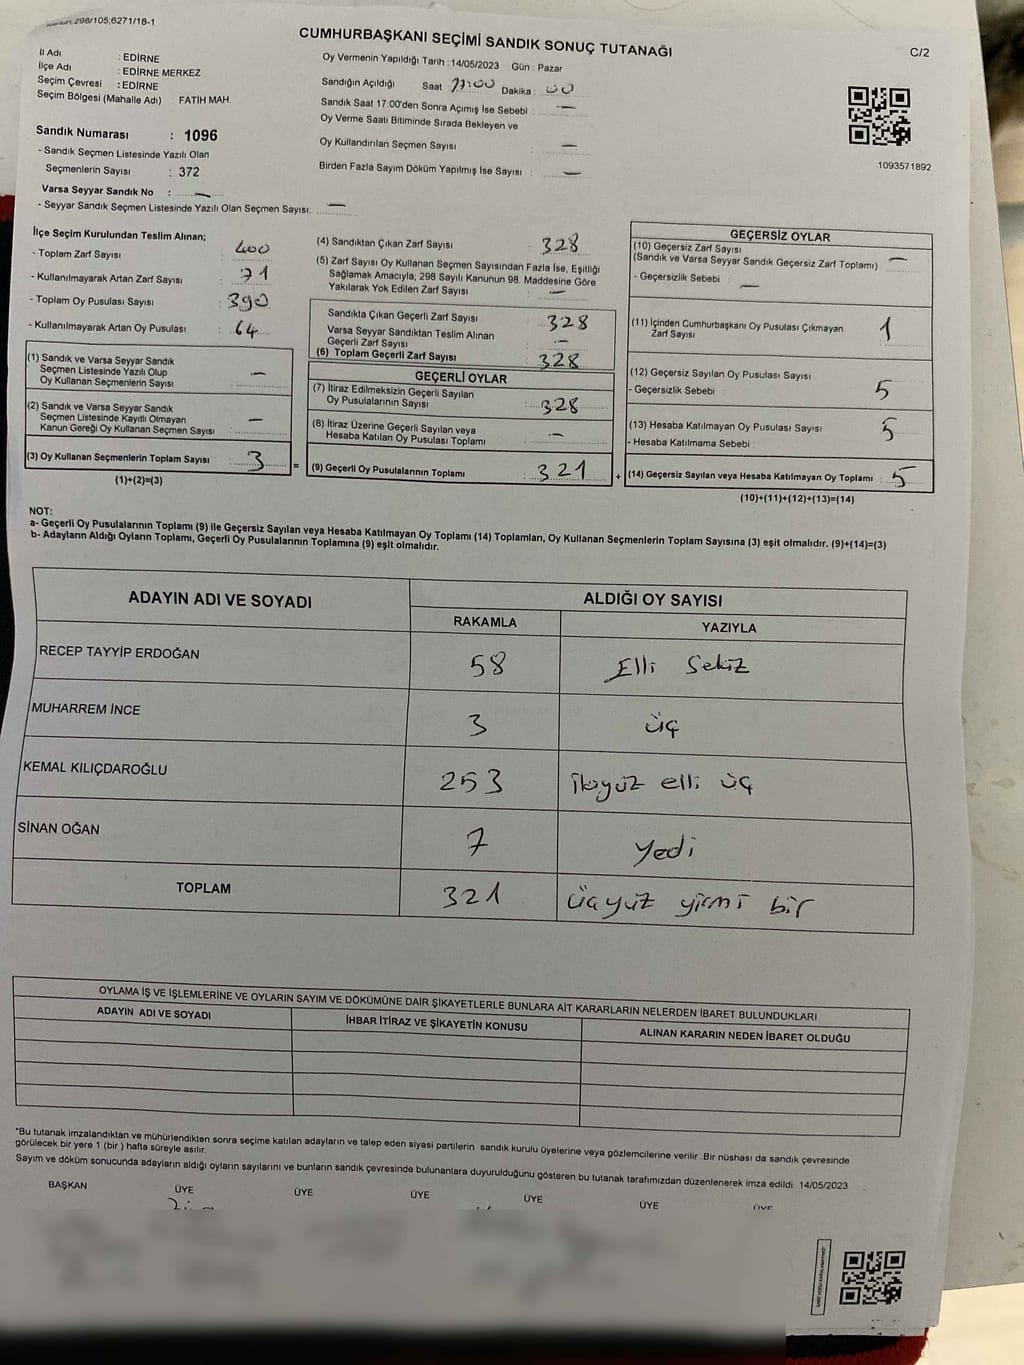 298/105;6271/18-1
CUMHURBAŞKANI SEÇİMİ SANDIK SONUÇ TUTANAĞI
C/2
İl Adı : EDİRNE
İlçe Adı : EDİRNE MERKEZ
Seçim Çevresi : EDİRNE
Seçim Bölgesi (Mahalle Adı) FATİH MAH.
Sandık Numarası : 1096
- Sandık Seçmen Listesinde Yazılı Olan
Seçmenlerin Sayısı : 372
Varsa Seyyar Sandık No : —
- Seyyar Sandık Seçmen Listesinde Yazılı Olan Seçmen Sayısı: —
Oy Vermenin Yapıldığı Tarih : 14/05/2023 Gün : Pazar
Sandığın Açıldığı Saat 17:00 Dakika : 00
Sandık Saat 17:00'den Sonra Açımış İse Sebebi : —
Oy Verme Saati Bitiminde Sırada Bekleyen ve
Oy Kullandırılan Seçmen Sayısı : —
Birden Fazla Sayım Döküm Yapılmış İse Sayısı : —
1093571892
İlçe Seçim Kurulundan Teslim Alınan;
- Toplam Zarf Sayısı : 400
- Kullanılmayarak Artan Zarf Sayısı : 71
- Toplam Oy Pusulası Sayısı : 390
- Kullanılmayarak Artan Oy Pusulası : 64
(1) Sandık ve Varsa Seyyar Sandık
Seçmen Listesinde Yazılı Olup
Oy Kullanan Seçmenlerin Sayısı : —
(2) Sandık ve Varsa Seyyar Sandık
Seçmen Listesinde Kayıtlı Olmayan
Kanun Gereği Oy Kullanan Seçmen Sayısı : —
(3) Oy Kullanan Seçmenlerin Toplam Sayısı : 3
(1)+(2)=(3)
=
(4) Sandıktan Çıkan Zarf Sayısı : 328
(5) Zarf Sayısı Oy Kullanan Seçmen Sayısından Fazla İse, Eşitliği
Sağlamak Amacıyla; 298 Sayılı Kanunun 98. Maddesine Göre
Yakılarak Yok Edilen Zarf Sayısı : —
Sandıkta Çıkan Geçerli Zarf Sayısı : 328
Varsa Seyyar Sandıktan Teslim Alınan
Geçerli Zarf Sayısı : —
(6) Toplam Geçerli Zarf Sayısı : 328
GEÇERLİ OYLAR
(7) İtiraz Edilmeksizin Geçerli Sayılan
Oy Pusulalarının Sayısı : 328
(8) İtiraz Üzerine Geçerli Sayılan veya
Hesaba Katılan Oy Pusulası Toplamı : —
(9) Geçerli Oy Pusulalarının Toplamı : 321
+
GEÇERSİZ OYLAR
(10) Geçersiz Zarf Sayısı
(Sandık ve Varsa Seyyar Sandık Geçersiz Zarf Toplamı) : —
- Geçersizlik Sebebi : —
(11) İçinden Cumhurbaşkanı Oy Pusulası Çıkmayan
Zarf Sayısı : 1
(12) Geçersiz Sayılan Oy Pusulası Sayısı : 5
- Geçersizlik Sebebi :
(13) Hesaba Katılmayan Oy Pusulası Sayısı : 5
- Hesaba Katılmama Sebebi :
(14) Geçersiz Sayılan veya Hesaba Katılmayan Oy Toplamı : 5
(10)+(11)+(12)+(13)=(14)
NOT:
a- Geçerli Oy Pusulalarının Toplamı (9) ile Geçersiz Sayılan veya Hesaba Katılmayan Oy Toplamı (14) Toplamları, Oy Kullanan Seçmenlerin Toplam Sayısına (3) eşit olmalıdır. (9)+(14)=(3)
b- Adayların Aldığı Oyların Toplamı, Geçerli Oy Pusulalarının Toplamına (9) eşit olmalıdır.
ADAYIN ADI VE SOYADI ALDIĞI OY SAYISI
RAKAMLA YAZIYLA
RECEP TAYYİP ERDOĞAN 58 Elli Sekiz
MUHARREM İNCE 3 üç
KEMAL KILIÇDAROĞLU 253 ikiyüz elli üç
SİNAN OĞAN 7 Yedi
TOPLAM 321 üçyüz yirmi bir
OYLAMA İŞ VE İŞLEMLERİNE VE OYLARIN SAYIM VE DÖKÜMÜNE DAİR ŞİKAYETLERLE BUNLARA AİT KARARLARIN NELERDEN İBARET BULUNDUKLARI
ADAYIN ADI VE SOYADI İHBAR İTİRAZ VE ŞİKAYETİN KONUSU ALINAN KARARIN NEDEN İBARET OLDUĞU
"Bu tutanak imzalandıktan ve mühürlendikten sonra seçime katılan adayların ve talep eden siyasi partilerin sandık kurulu üyelerine veya gözlemcilerine verilir .Bir nüshası da sandık çevresinde
görülecek bir yere 1 (bir ) hafta süreyle asılır.
Sayım ve döküm sonucunda adayların aldığı oyların sayılarını ve bunların sandık çevresinde bulunanlara duyurulduğunu gösteren bu tutanak tarafımızdan düzenlenerek imza edildi. 14/05/2023
BAŞKAN ÜYE ÜYE ÜYE ÜYE ÜYE ÜYE